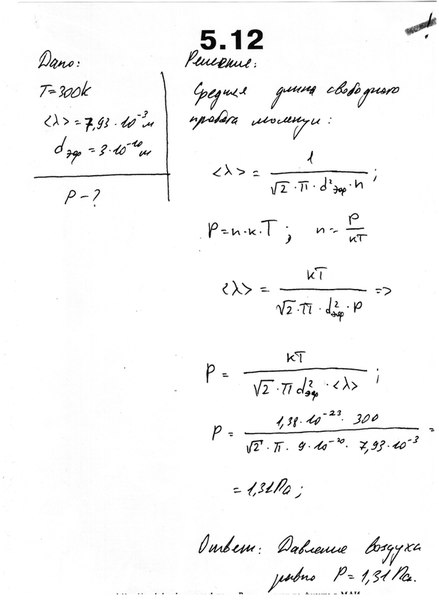 5.12
Дано:
T=300k
<λ> = 7,93·10⁻³ м
dэф = 3·10⁻¹⁰ м
P - ?
Решение:
Средняя длина свободного
пробега молекул:
<λ> = 1 / (√2 · π · d²эф · n) ;
P = n·k·T ; n = P / kT
<λ> = kT / (√2 · π · d²эф · P) =>
P = kT / (√2 · π d²эф · <λ>) ;
P = 1,38·10⁻²³ · 300 / (√2 · π · 9·10⁻²⁰ · 7,93·10⁻³) =
= 1,31 Pa ;
Ответ: Давление воздуха
равно P = 1,31 Па.